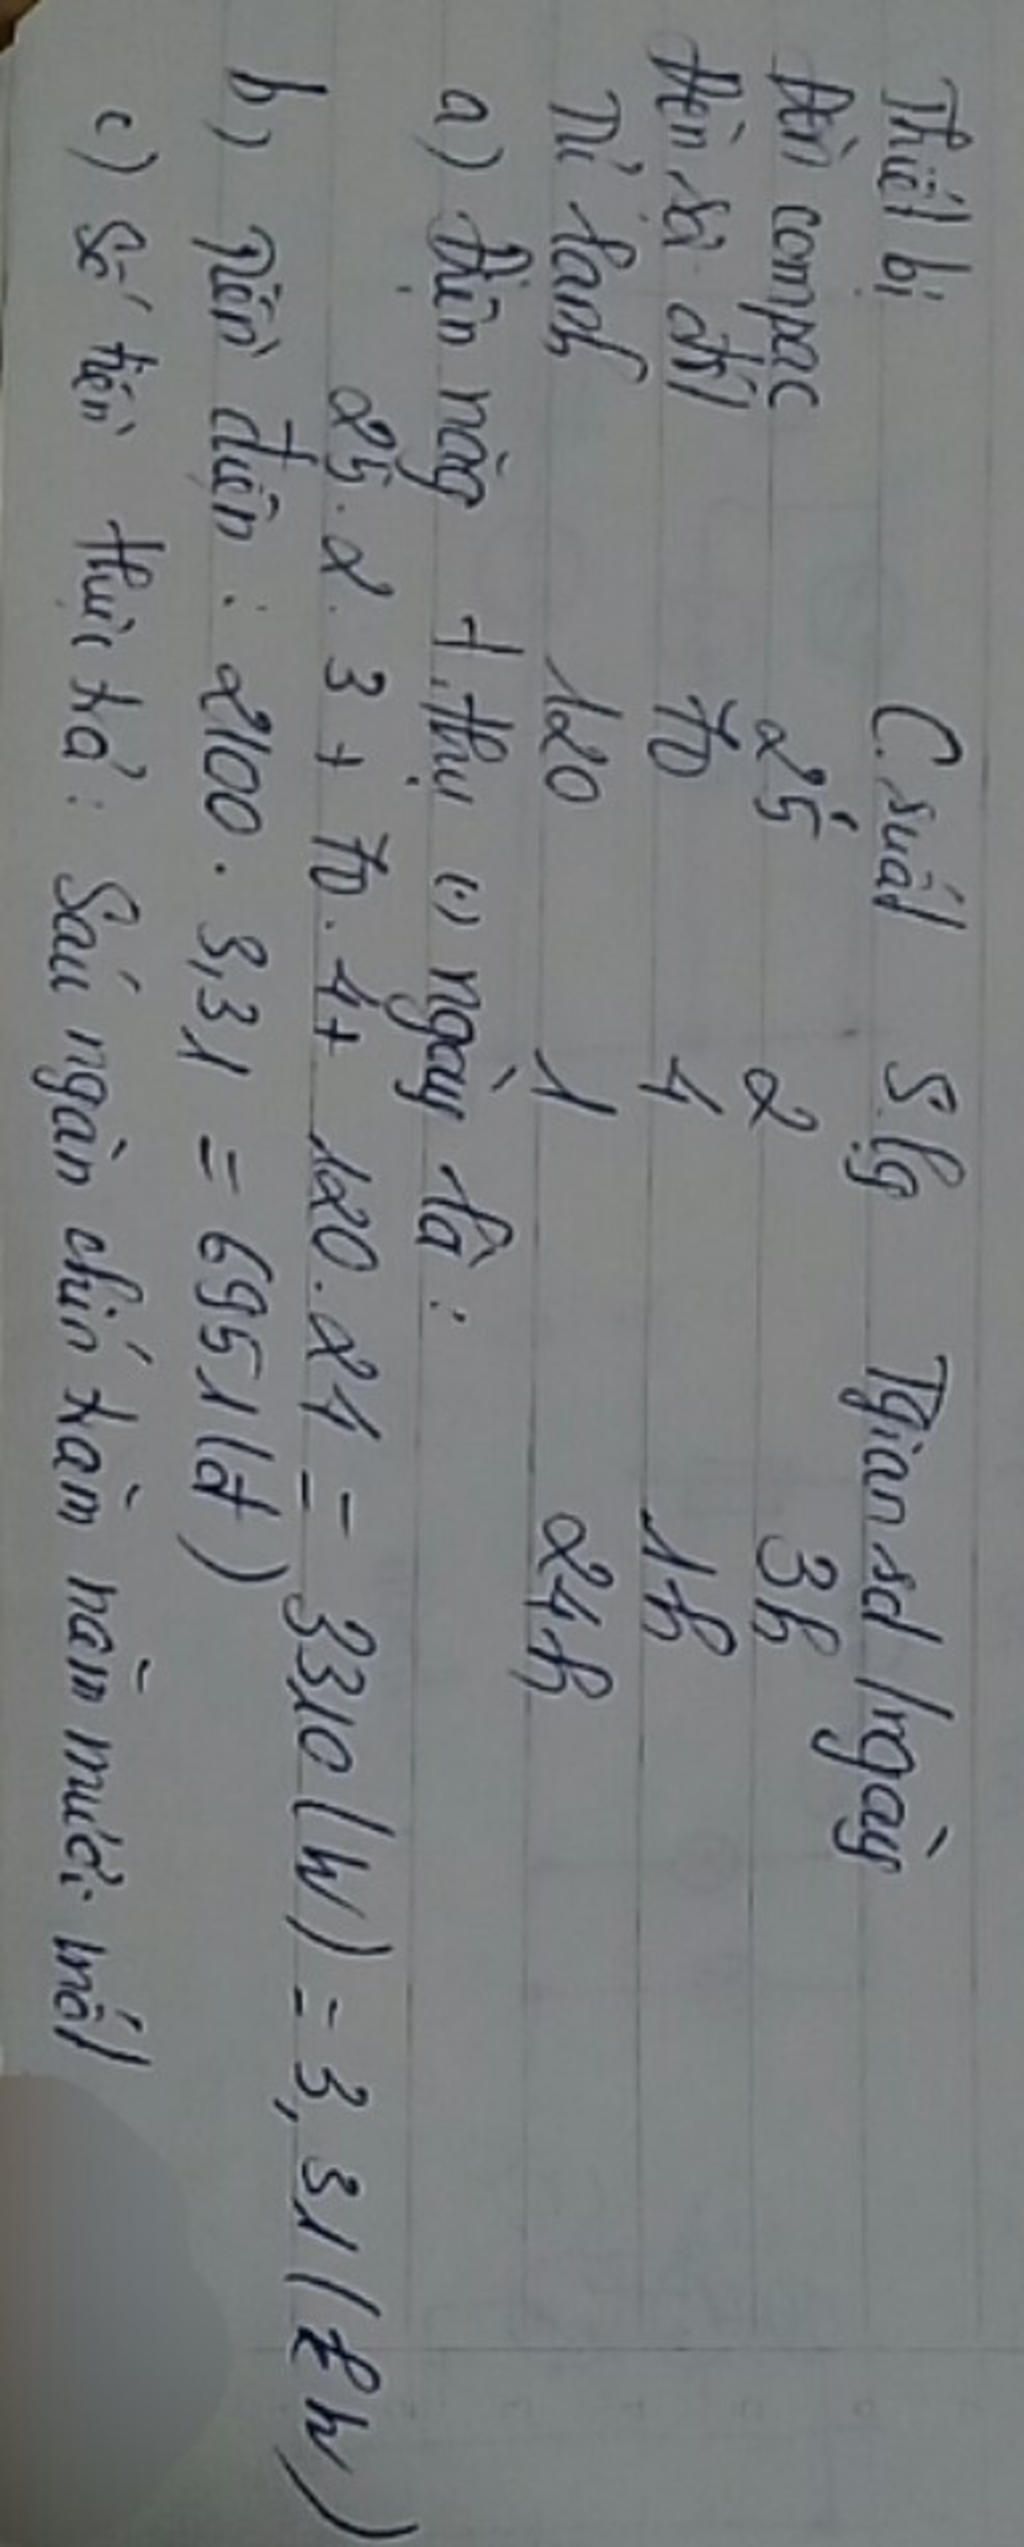 Thiết bị C.suất S.lg Tgian sd/ngày
Đèn compac 25 2 3h
Đèn sợi đốt 70 4 1h
Tủ lạnh 120 1 24h
a) Điện năng t.thụ (.) ngày là:
25.2.3 + 70.4 + 120.24 = 3310 (W) = 3,31 (kW)
b) Tiền điện: 2100. 3,31 = 6951 (đ)
c) Số tiền thực trả: Sáu ngàn chín trăm năm mươi mốt